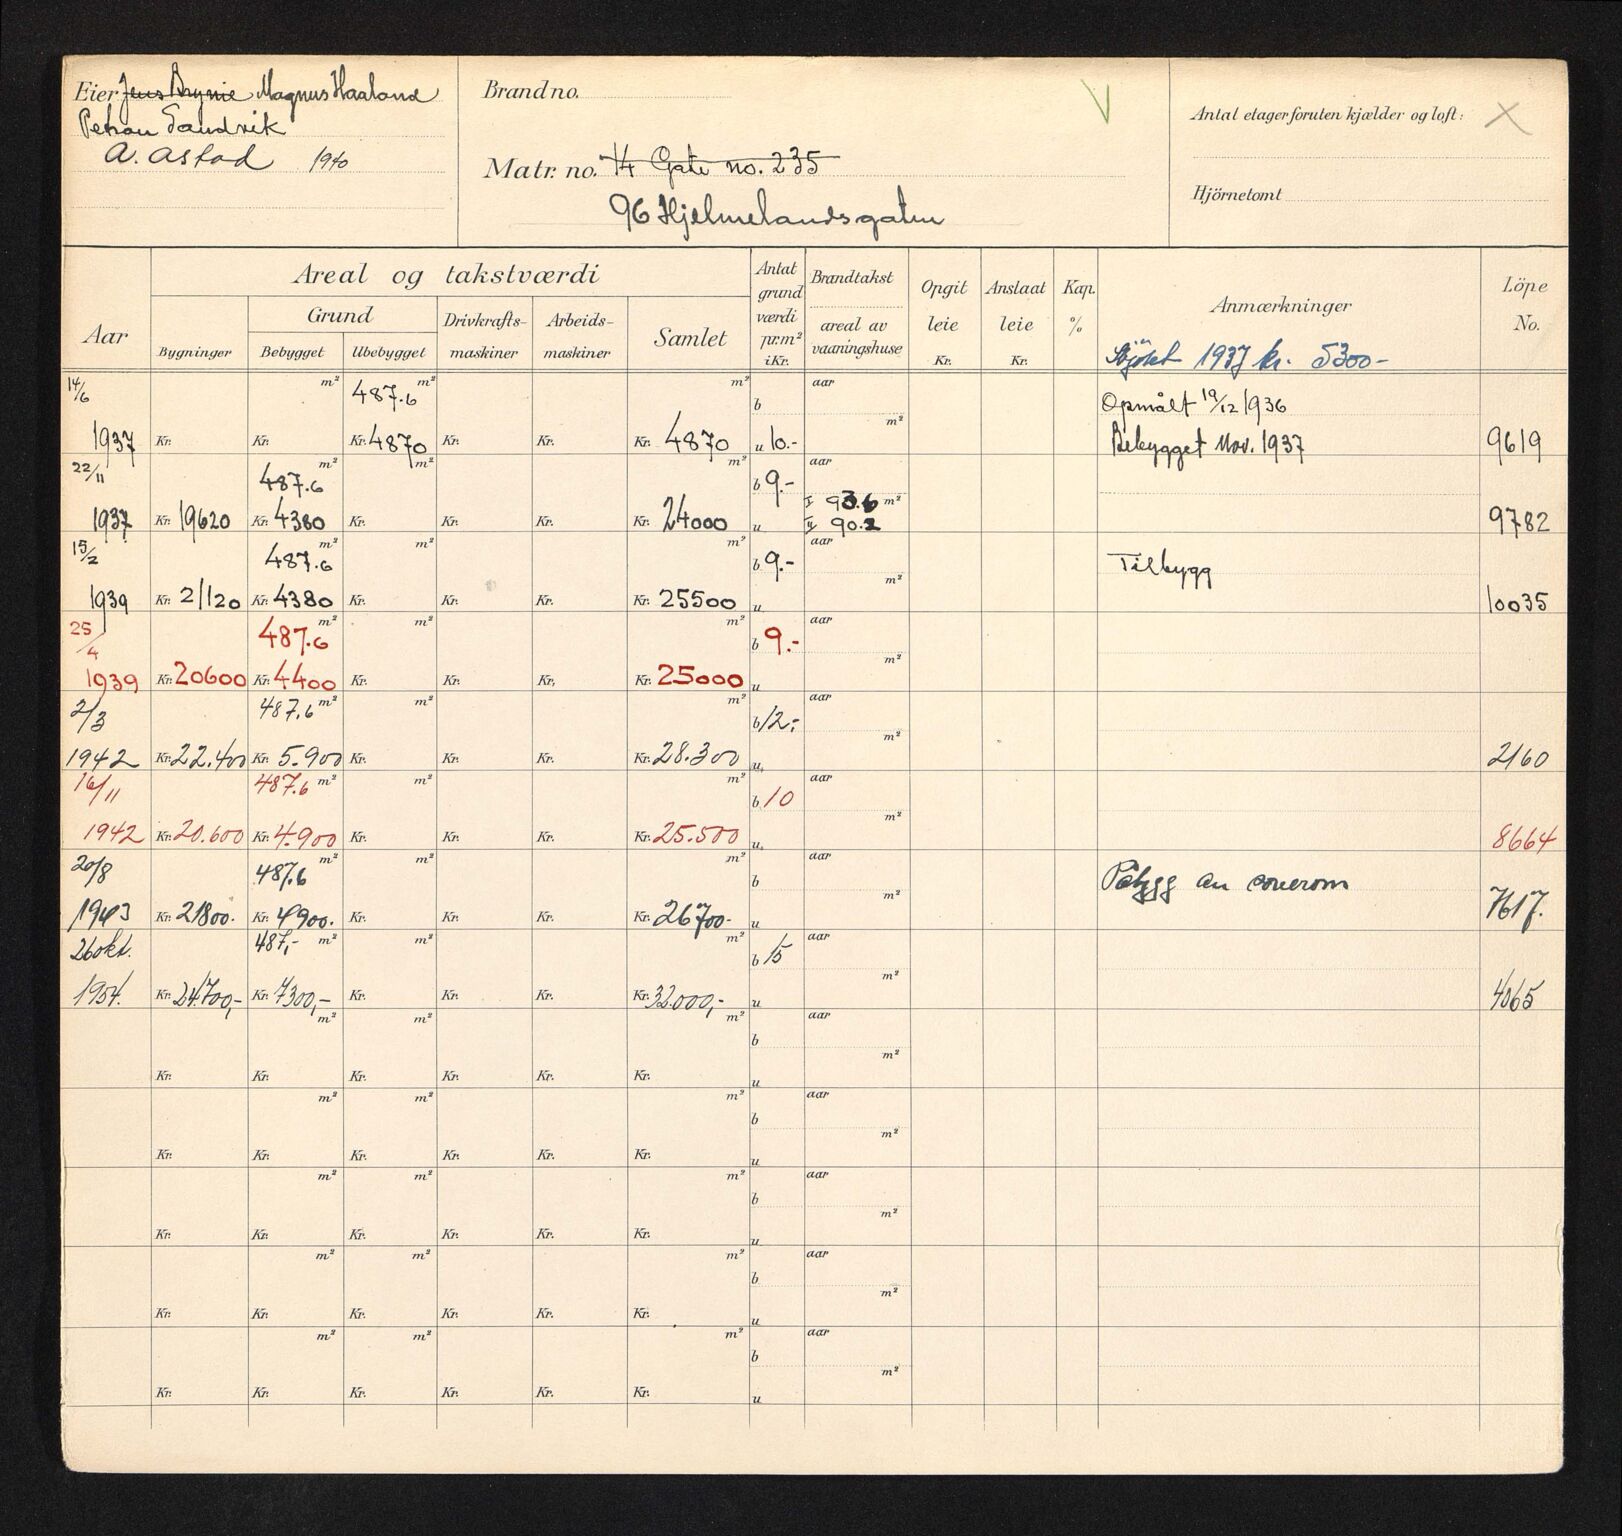 Eier Jens Brynie Magnus Haaland
Sandvik
A. Astad 1940
Brand no.
Matr. no. 14 Gate no. 235
96 Hjelmelandsgaten
Antal etager foruten kjælder og loft: X
Hjörnetomt
Aar
Areal og takstværdi
Bygninger
Grund
Bebygget
Ubebygget
Drivkrafts-
maskiner
Arbeids-
maskiner
Samlet
Antat
grund
værdi
pr. m²
i Kr.
Brandtakst
areal av
vaaningshuse
Opgit
leie
Kr.
Anslaat
leie
Kr.
Kap.
%
Anmærkninger
Kjöpt 1937 kr. 5300-
Löpe
No.
14/6 m² 487.6 m² m² b aar
Opmålt 19/12 1936
1937 Kr. Kr. Kr. 4870 Kr. Kr. Kr. 4870 u 10.- m² Bebygget Nov. 1937 9619
22/11 487.6 m² m² m² b 9.- aar
I 93.6 m²
1937 Kr. 19620 Kr. 4380 Kr. Kr. Kr. Kr. 24000 u II 90.2 9782
15/2 487.6 m² m² m² b 9.- aar
Tilbygg
1939 Kr. 21120 Kr. 4380 Kr. Kr. Kr. Kr. 25500 u m² 10035
25/4 487.6 m² m² m² b 9.- aar
1939 Kr. 20600 Kr. 4400 Kr. Kr. Kr. Kr. 25000 u m²
2/3 487.6 m² m² m² b 12.- aar
1942 Kr. 22.400 Kr. 5.900 Kr. Kr. Kr. Kr. 28.300 u m² 2160
16/11 487.6 m² m² m² b 10 aar
1942 Kr. 20.600 Kr. 4.900 Kr. Kr. Kr. Kr. 25.500 u m² 8664
20/8 487.6 m² m² m² b aar
Påbygg av soverom
1943 Kr. 21800.- Kr. 4900.- Kr. Kr. Kr. Kr. 26700- u m² 7617.
26 okt. 487,- m² m² m² b 15 aar
1954. Kr. 24.700,- Kr. 7300,- Kr. Kr. Kr. Kr. 32.000,- u m² 4065
m² m² m² b aar
Kr. Kr. Kr. Kr. Kr. Kr. u m²
m² m² m² b aar
Kr. Kr. Kr. Kr. Kr. Kr. u m²
m² m² m² b aar
Kr. Kr. Kr. Kr. Kr. Kr. u m²
m² m² m² b aar
Kr. Kr. Kr. Kr. Kr. Kr. u m²
m² m² m² b aar
Kr. Kr. Kr. Kr. Kr. Kr. u m²